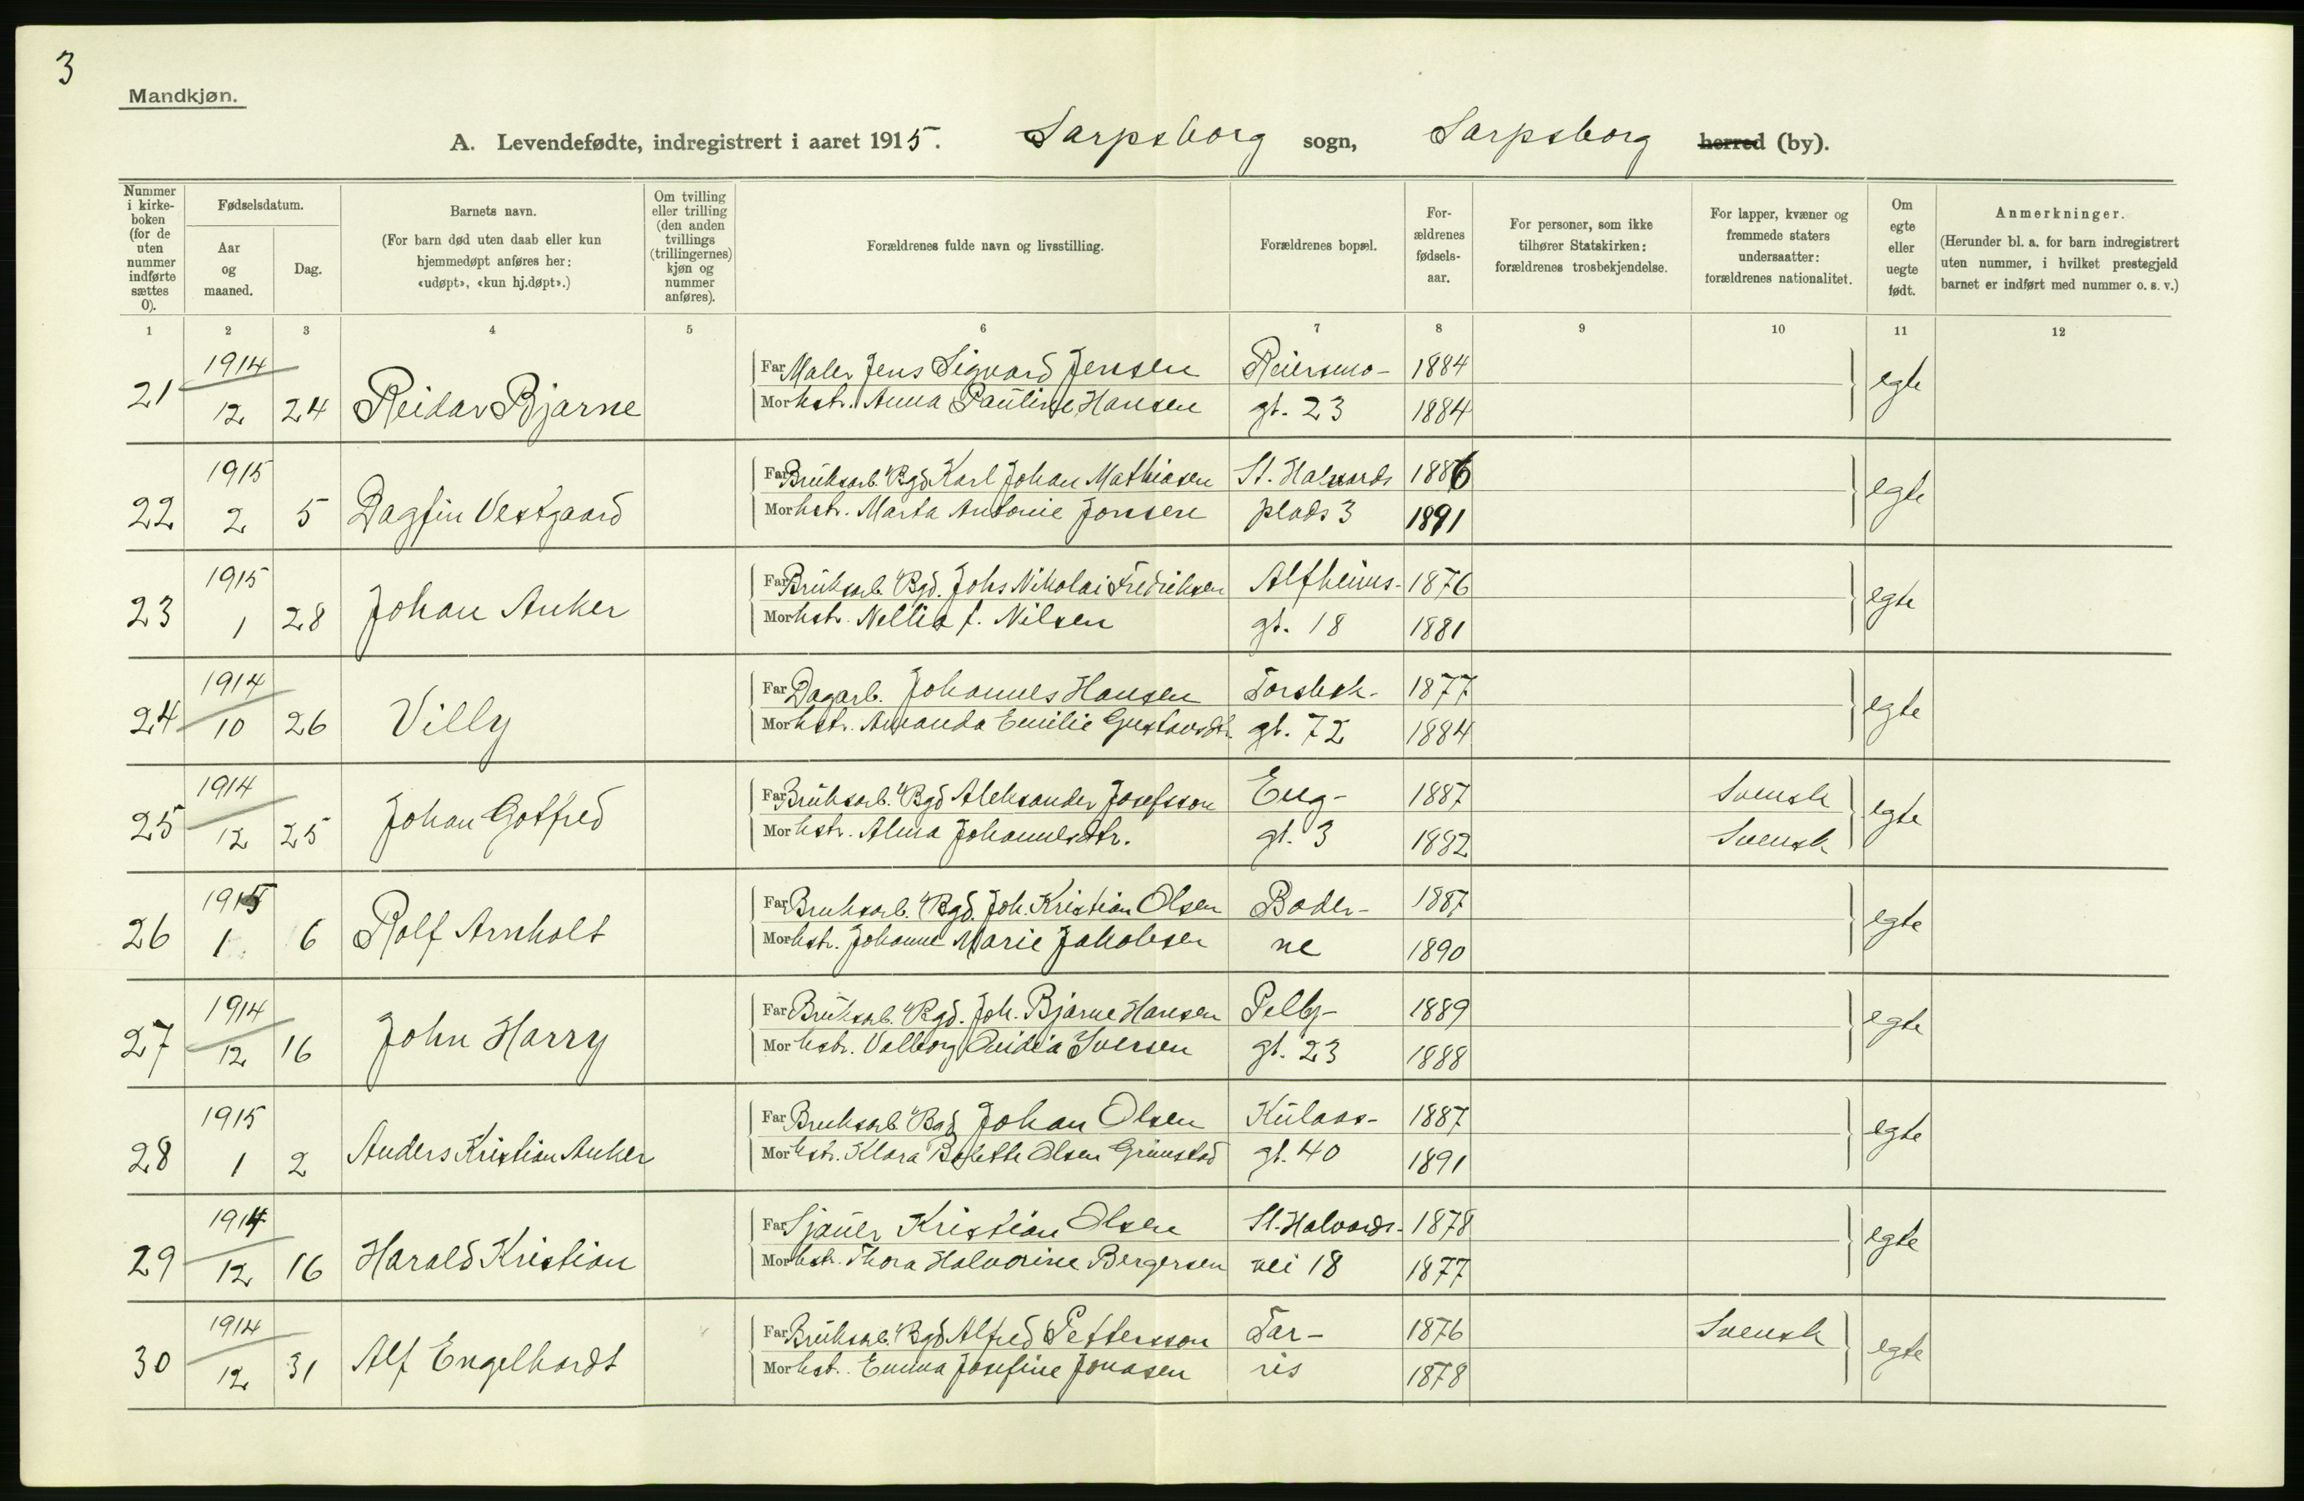 3
Mandkjøn.
A. Levendefødte, indregistrert i aaret 1915. Sarpsborg sogn, Sarpsborg herred (by).
Nummer i kirkeboken (for de uten nummer indførte sættes 0).
Fødselsdatum.
Aar og maaned.
Dag.
Barnets navn.
(For barn død uten daab eller kun hjemmedøpt anføres her: «udøpt», «kun hj.døpt».)
Om tvilling eller trilling (den anden tvillings (trillingernes) kjøn og nummer anføres).
Forældrenes fulde navn og livsstilling.
Forældrenes bopæl.
Forældrenes fødselsaar.
For personer, som ikke tilhører Statskirken: forældrenes trosbekjendelse.
For lapper, kvæner og fremmede staters undersaatter: forældrenes nationalitet.
Om egte eller uegte født.
Anmerkninger.
(Herunder bl. a. for barn indregistrert uten nummer, i hvilket prestegjeld barnet er indført med nummer o. s. v.)
1 2 3 4 5 6 7 8 9 10 11 12
1914 Far Maler Jens Sigvard Jensen Reiersmo- 1884
21 12 24 Reidar Bjarne Mor hstr. Anna Pauline Hansen gt. 23 1884 egte
1915 Far Bruksarb. Bgd Karl Johan Mathiasen St. Halvards 1886
22 2 5 Dagfin Vestgaard Mor hstr. Marta Antonie Jonsen plads 3 1891 egte
1915 Far Bruksarb. Bgd. Johs Nikolai Fredriksen Alfheims- 1876
23 1 28 Johan Anker Mor hstr. Nellia f. Nilsen gt. 18 1881 egte
1914 Far Dagarb. Johannes Hansen Torsbek- 1877
24 10 26 Villy Mor hstr. Amanda Emilie Gustavsdtr. gt. 72 1884 egte
1914 Far Bruksarb. Bgd Aleksander Josefsson Eng- 1887 Svensk
25 12 25 Johan Gotfred Mor hstr. Alma Johannesdtr. gt. 3 1882 Svensk egte
1915 Far Bruksarb. Bgd. Joh. Kristian Olsen Boder- 1887
26 1 6 Rolf Arnholt Mor hstr. Johanne Marie Jakobsen ne 1890 egte
1914 Far Bruksarb. Bgd. Joh. Bjarne Hansen Pelly- 1889
27 12 16 John Harry Mor hstr. Valborg Ovidia Iversen gt. 23 1888 egte
1915 Far Bruksarb. Bgd Johan Olsen Kulaas- 1887
28 1 2 Anders Kristian Anker Mor hstr. Klara Bolette Olsen Grimstad gt. 40 1891 egte
1914 Far Sjauer Kristian Olsen St. Halvards- 1878
29 12 16 Harald Kristian Mor hstr. Thora Halvorine Bergersen vei 18 1877 egte
1914 Far Bruksarb. Bgd Alfred Pettersson Tar- 1876 Svensk
30 12 31 Alf Engelhardt Mor hst. Emma Josefine Jonasen ris 1878 egte